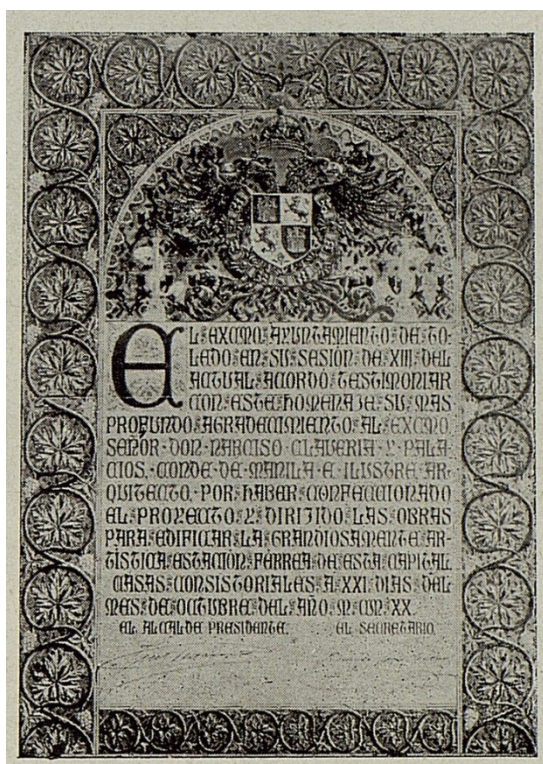 EL EXCMO. AYUNTAMIENTO DE TO-
LEDO EN SU SESION DE XIII DEL
ACTUAL ACORDÓ TESTIMONIAR
CON ESTE HOMENAJE SU MAS
PROFUNDO AGRADECIMIENTO AL EXCMO.
SEÑOR DON NARCISO CLAVERIA Y PALA-
CIOS, CONDE DE MANILA E ILUSTRE AR-
QUITECTO, POR HABER CONFECCIONADO
EL PROYECTO Y DIRIJIDO LAS OBRAS
PARA EDIFICAR LA GRANDIOSAMENTE AR-
TÍSTICA ESTACION FÉRREA DE ESTA CAPITAL
CASAS CONSISTORIALES A XXI DIAS DEL
MES DE OCTUBRE DEL AÑO M.CM.XX.
EL ALCALDE PRESIDENTE. EL SECRETARIO.